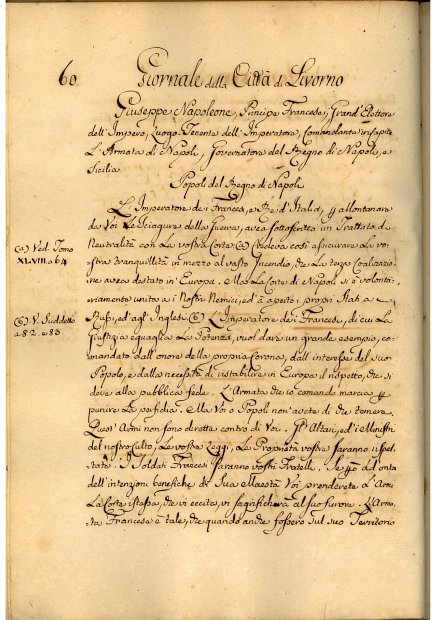 60 Giornale della Città di Livorno
Giuseppe Napoleone, Principe Francese, Grand'Elettore
dell'Impero, Luogo-Tenente dell'Imperatore, Comandante in Capite
L'Armata di Napoli, Governatore del Regno di Napoli, e
Sicilia.
Popoli del Regno di Napoli
L'Imperatore dei Francesi, e Re d'Italia, p allontanare
da Voi Le Sciagure della Guerra, avea sottoscritto un Trattato di
Neutralità con La vostra Corte (a) Credeva così assicurare La vo-
(a) Ved. Tomo
XLVIII. a 64
stra tranquillità in mezzo al vasto Incendio, che La terza Coalizio-
ne avea destato in Europa. Ma La Corte di Napoli si è volonta-
riamente unita ai Nostri Nemici, ed à aperti i propri Stati a
Russi, ed agl'Inglesi (b) L'Imperatore dei Francesi, di cui La
(b) V. Suddetto
a 82. e 83.
Giustizia eguaglia La Potenza, vuol dare un grande esempio, co-
mandato dall'onore della propria Corona, dall'interesse del suo
Popolo, e dalla necessità di ristabilire in Europa il rispetto, che si
deve alla pubblica fede. L'Armata che io comando marcia p
punire La perfidia. Ma Voi o Popoli non avete di che temere.
Quest'Armi non sono dirette contro di Voi. Gl'Altari, ed i Ministri
del nostro culto, Le vostre Leggi, Le Proprietà vostre saranno rispet-
tate. I Soldati Francesi saranno vostri Fratelli. Se p ad onta
dell'intenzioni benefiche di Sua Maestà Voi prenderete L'Armi
La Corte istessa, che vi eccita, vi sagrificherà al suo furore. L'Arma-
ta Francese è tale, che quando anche fossero sul suo Territorio